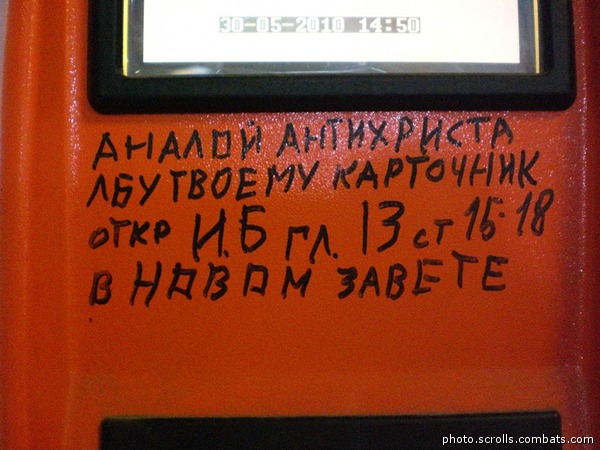 30-05-2010 14:50
АНАЛОЙ АНТИХРИСТА
ЛБУ ТВОЕМУ КАРТОЧНИК
ОТКР И.Б ГЛ. 13 СТ 16-18
В НОВОМ ЗАВЕТЕ
photo.scrolls.combats.com